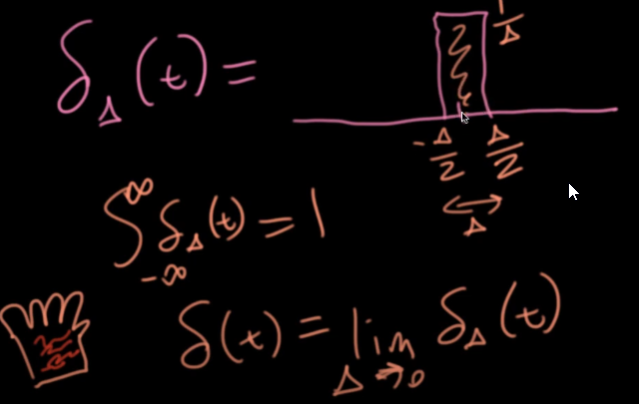 δ_Δ(t) =
1/Δ
-Δ/2 Δ/2
Δ
∫_{-∞}^{∞} δ_Δ(t) = 1
δ(t) = lim_{Δ→0} δ_Δ(t)